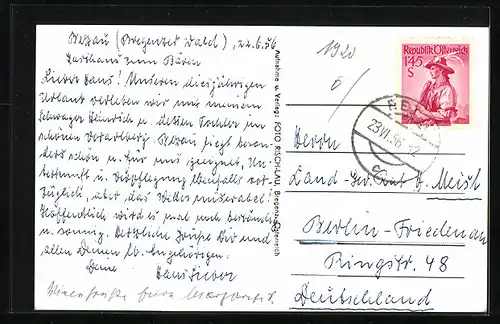 Bezau (Bregenzer Wald), 22.6.56
Gasthaus zum Bären
Lieber Hans! Unseren diesjährigen
Urlaub verleben wir mit meinem
Schwager Heinrich u. dessen Tochter im
schönen Vorarlberg. Bezau liegt beson-
ders schön u. für uns geeignet, Un-
terkunft u. Verpflegung ebenfalls vor-
züglich, aber das Wetter miserabel.
Hoffentlich wird es mal noch beständig
u. sonnig. Herzliche Grüße Dir und
allen Deinen lb. Angehörigen.
Deine
Aufnahme u. Verlag: FOTO RISCH-LAU, Bregenz-Österreich
1920
Republik Österreich
1.45
S
23.VI.56-12
c
Herrn
Land-Ger.-Rat
Berlin-Friedenau
Ringstr. 48
Deutschland